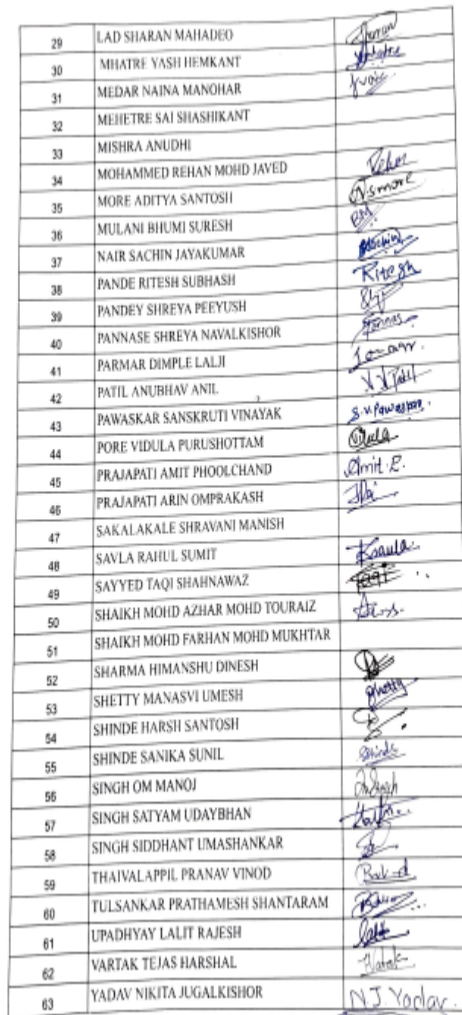 29 LAD SHARAN MAHADEO
30 MHATRE YASH HEMKANT
31 MEDAR NAINA MANOHAR
32 MEHETRE SAI SHASHIKANT
33 MISHRA ANUDHI
34 MOHAMMED REHAN MOHD JAVED Rehan
35 MORE ADITYA SANTOSH Nsmore
36 MULANI BHUMI SURESH
37 NAIR SACHIN JAYAKUMAR Sachin
38 PANDE RITESH SUBHASH Ritesh
39 PANDEY SHREYA PEEYUSH
40 PANNASE SHREYA NAVALKISHOR
41 PARMAR DIMPLE LALJI
42 PATIL ANUBHAV ANIL
43 PAWASKAR SANSKRUTI VINAYAK S.V.Pawaskar
44 PORE VIDULA PURUSHOTTAM
45 PRAJAPATI AMIT PHOOLCHAND Amit.P.
46 PRAJAPATI ARIN OMPRAKASH
47 SAKALAKALE SHRAVANI MANISH
48 SAVLA RAHUL SUMIT
49 SAYYED TAQI SHAHNAWAZ Taqi
50 SHAIKH MOHD AZHAR MOHD TOURAIZ
51 SHAIKH MOHD FARHAN MOHD MUKHTAR
52 SHARMA HIMANSHU DINESH
53 SHETTY MANASVI UMESH Shetty
54 SHINDE HARSH SANTOSH
55 SHINDE SANIKA SUNIL Shinde
56 SINGH OM MANOJ
57 SINGH SATYAM UDAYBHAN
58 SINGH SIDDHANT UMASHANKAR
59 THAIVALAPPIL PRANAV VINOD
60 TULSANKAR PRATHAMESH SHANTARAM
61 UPADHYAY LALIT RAJESH
62 VARTAK TEJAS HARSHAL
63 YADAV NIKITA JUGALKISHOR NJ Yadav.